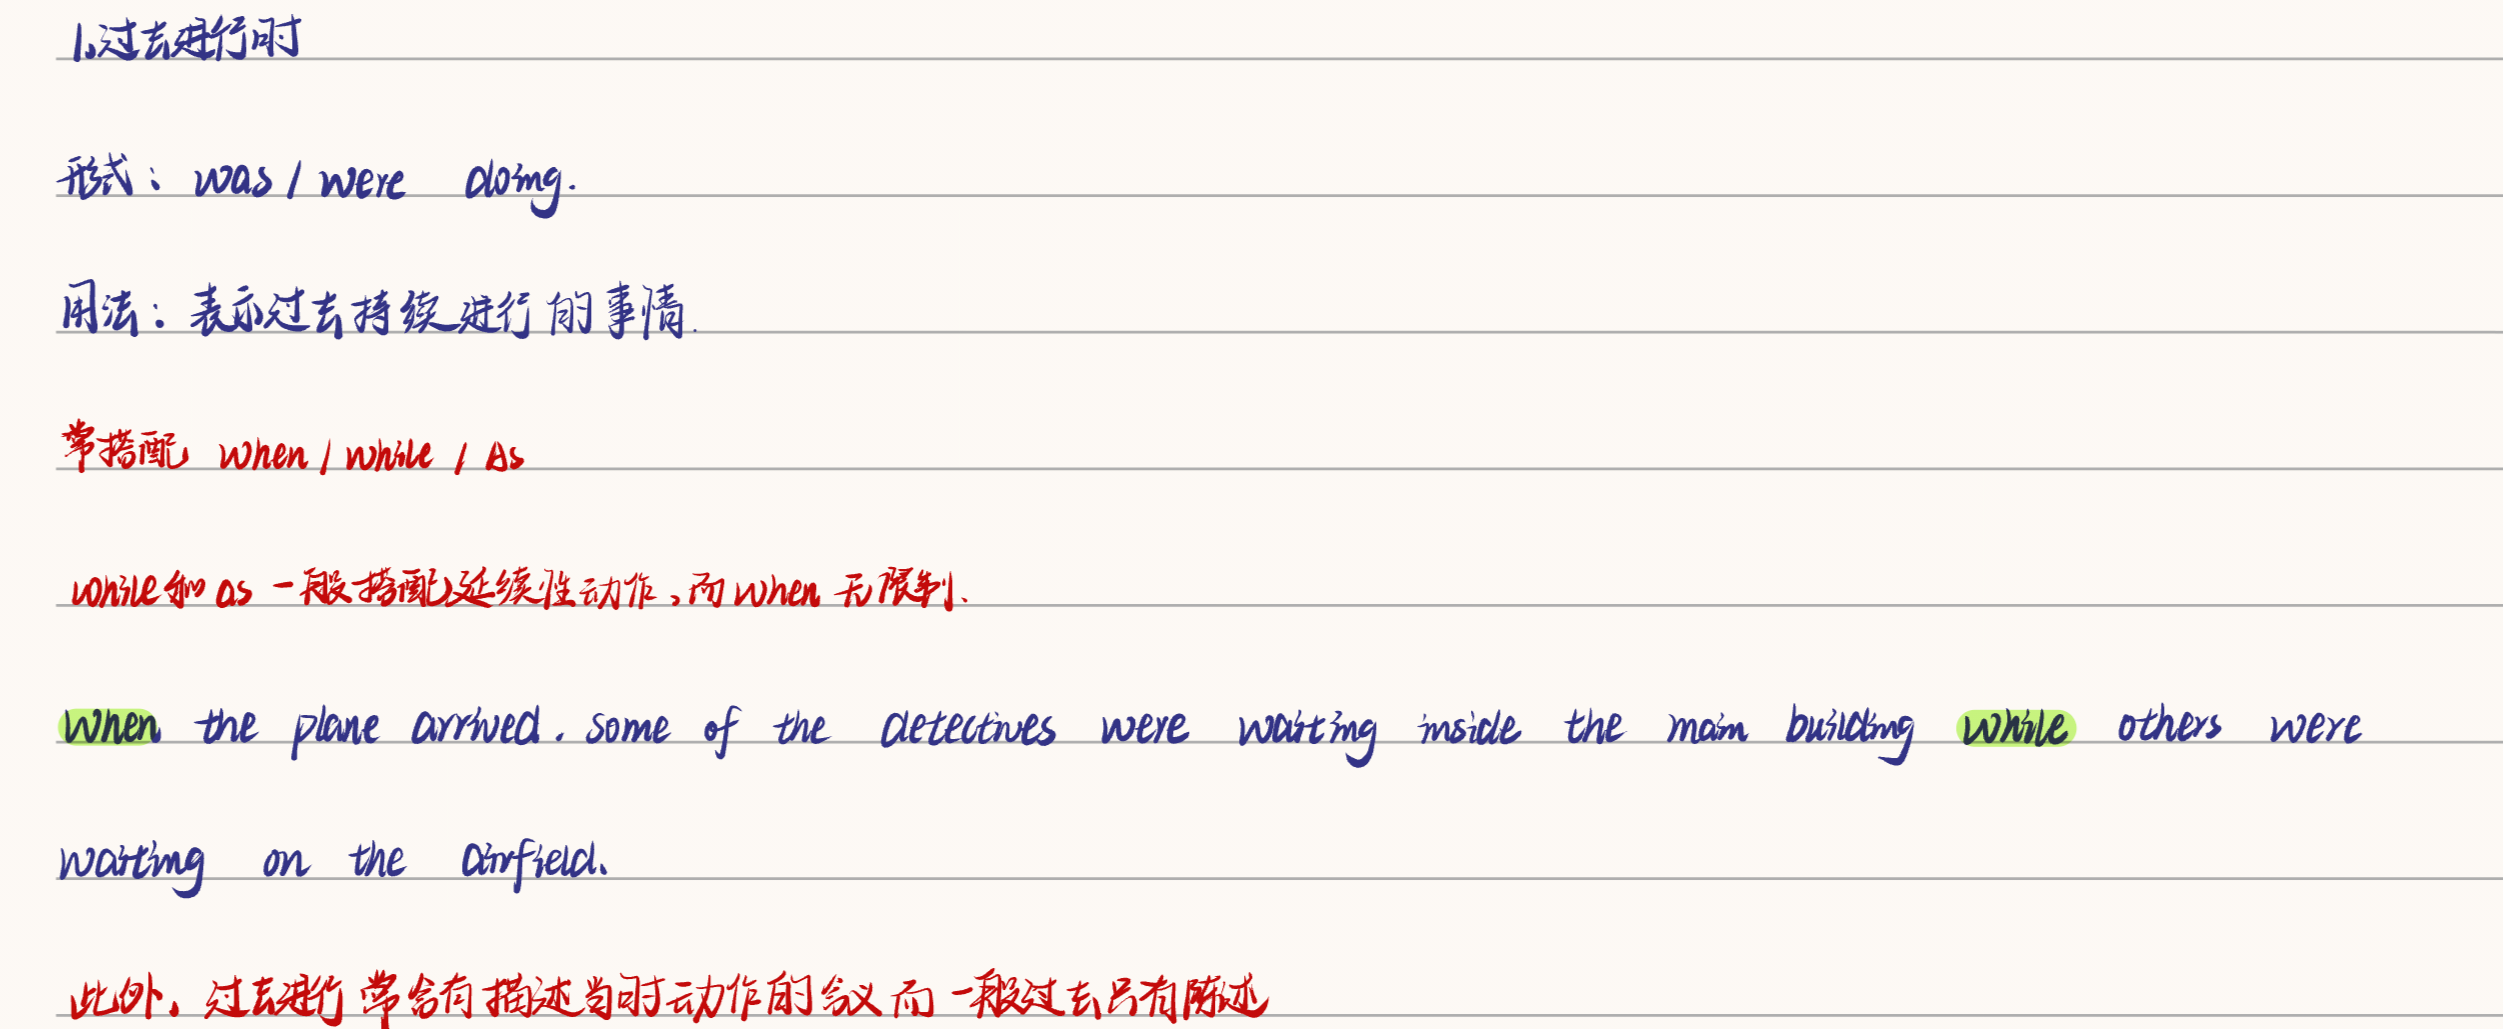 1.过去进行时
形式：was / were doing.
用法：表示过去持续进行的事情.
常搭配 when / while / As
while和as 一般搭配延续性动作，而when 无限制.
When the plane arrived. some of the detectives were waiting inside the main building while others were
waiting on the airfield.
此外，过去进行常含有描述当时动作的含义而一般过去只有陈述